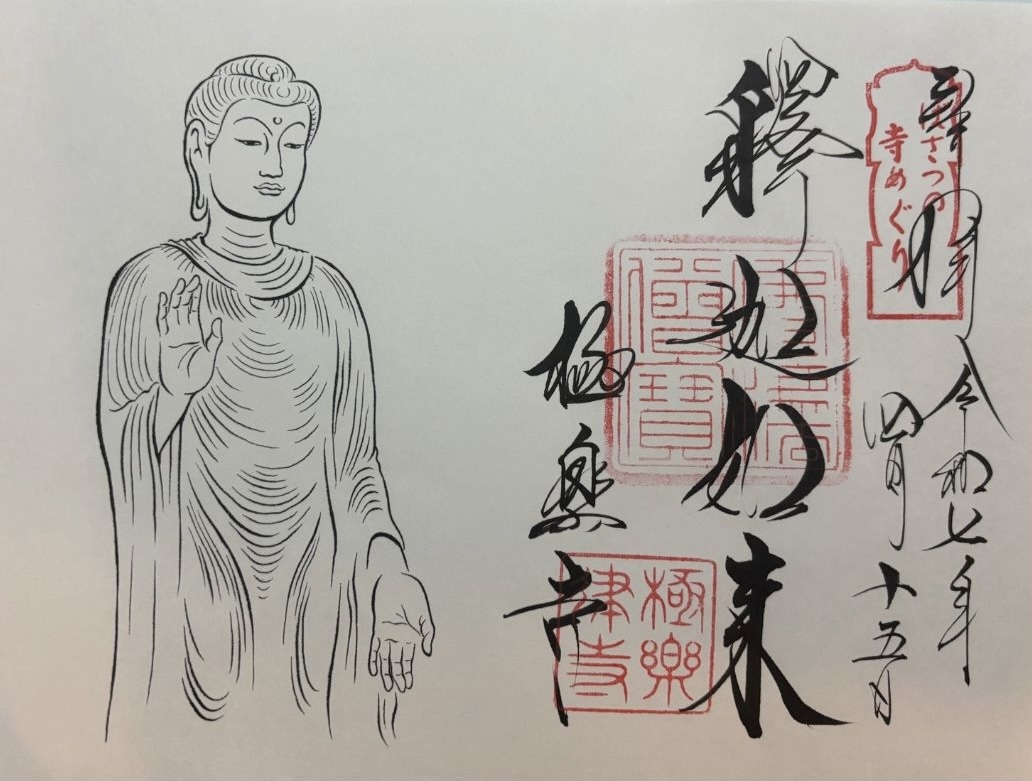 奉拝
令和七年
四月十五日
ぼさつの
寺めぐり
釋迦如来
佛法
僧寶
極楽寺
極樂
律寺